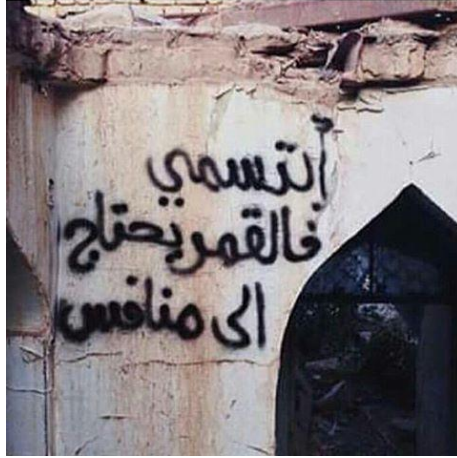 أبتسمي
فالقمر يحتاج
الى منافس